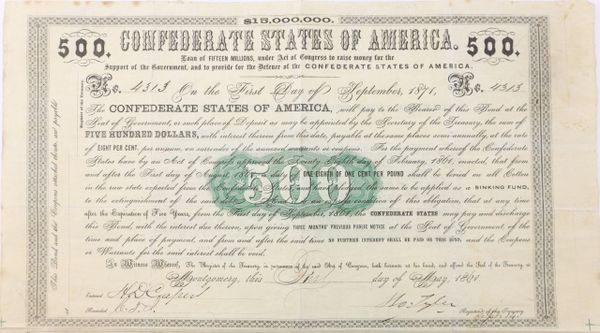 $15,000,000.
500. CONFEDERATE STATES OF AMERICA. 500.
Loan of FIFTEEN MILLIONS, under Act of Congress to raise money for the
Support of the Government, and to provide for the Defence of the CONFEDERATE STATES OF AMERICA.
No. 4313 On the First Day of September, 1871, No. 4313
The CONFEDERATE STATES OF AMERICA, will pay to the Bearer of this Bond at the
Seat of Government, or such place of Deposit as may be appointed by the Secretary of the Treasury, the sum of
FIVE HUNDRED DOLLARS, with interest thereon from this date, payable at the same places semi-annually, at the rate
of EIGHT PER CENT. per annum, on surrender of the annexed warrants or coupons. For the payment whereof the Confederate
States have by an Act of Congress approved the Twenty Eighth day of February, 1861, enacted, that from
and after the First day of August ONE EIGHTH OF ONE CENT PER POUND shall be levied on all Cotton
in the raw state exported from the Confederate States to be applied as a SINKING FUND,
to the extinguishment of the condition of this obligation, that at any time
after the Expiration of Five Years, from the First day of September, 1861, the CONFEDERATE STATES may pay and discharge
this Bond, with the interest due thereon, upon giving THREE MONTHS' PREVIOUS PUBLIC NOTICE at the Seat of Government of the
time and place of payment, and from and after the said time NO FURTHER INTEREST SHALL BE PAID ON THIS BOND, and the Coupons
or Warrants for the said interest shall be void.
In Witness Whereof, The Register of the Treasury, in pursuance of the said Act of Congress, hath hereunto set his hand, and affixed the Seal of the Treasury, at
Montgomery, this First day of May, 1861.
Entered
Recorded
Register of the Treasury
500